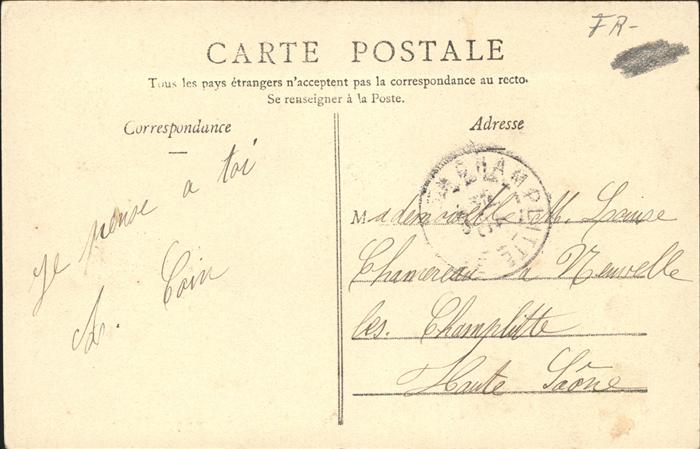 FR-
CARTE POSTALE
Tous les pays étrangers n'acceptent pas la correspondance au recto.
Se renseigner à la Poste.
Correspondance
Je pense a toi
L. Coin
Adresse
Mademoiselle M. Louise
Chamereau a Neuvelle
les. Champlitte
Haute Saône
CHAMPLITTE